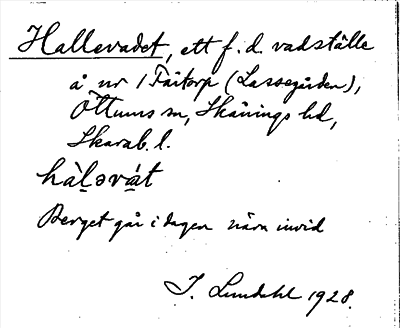 Hallevadet, ett f. d. vadställe
å nr 1 Fåtorp (Lassegården),
Ottums sn, Skånings hd,
Skarab. l.
hàḷəvá̱t
Berget går i dagen nära invid
J. Lundahl 1928.